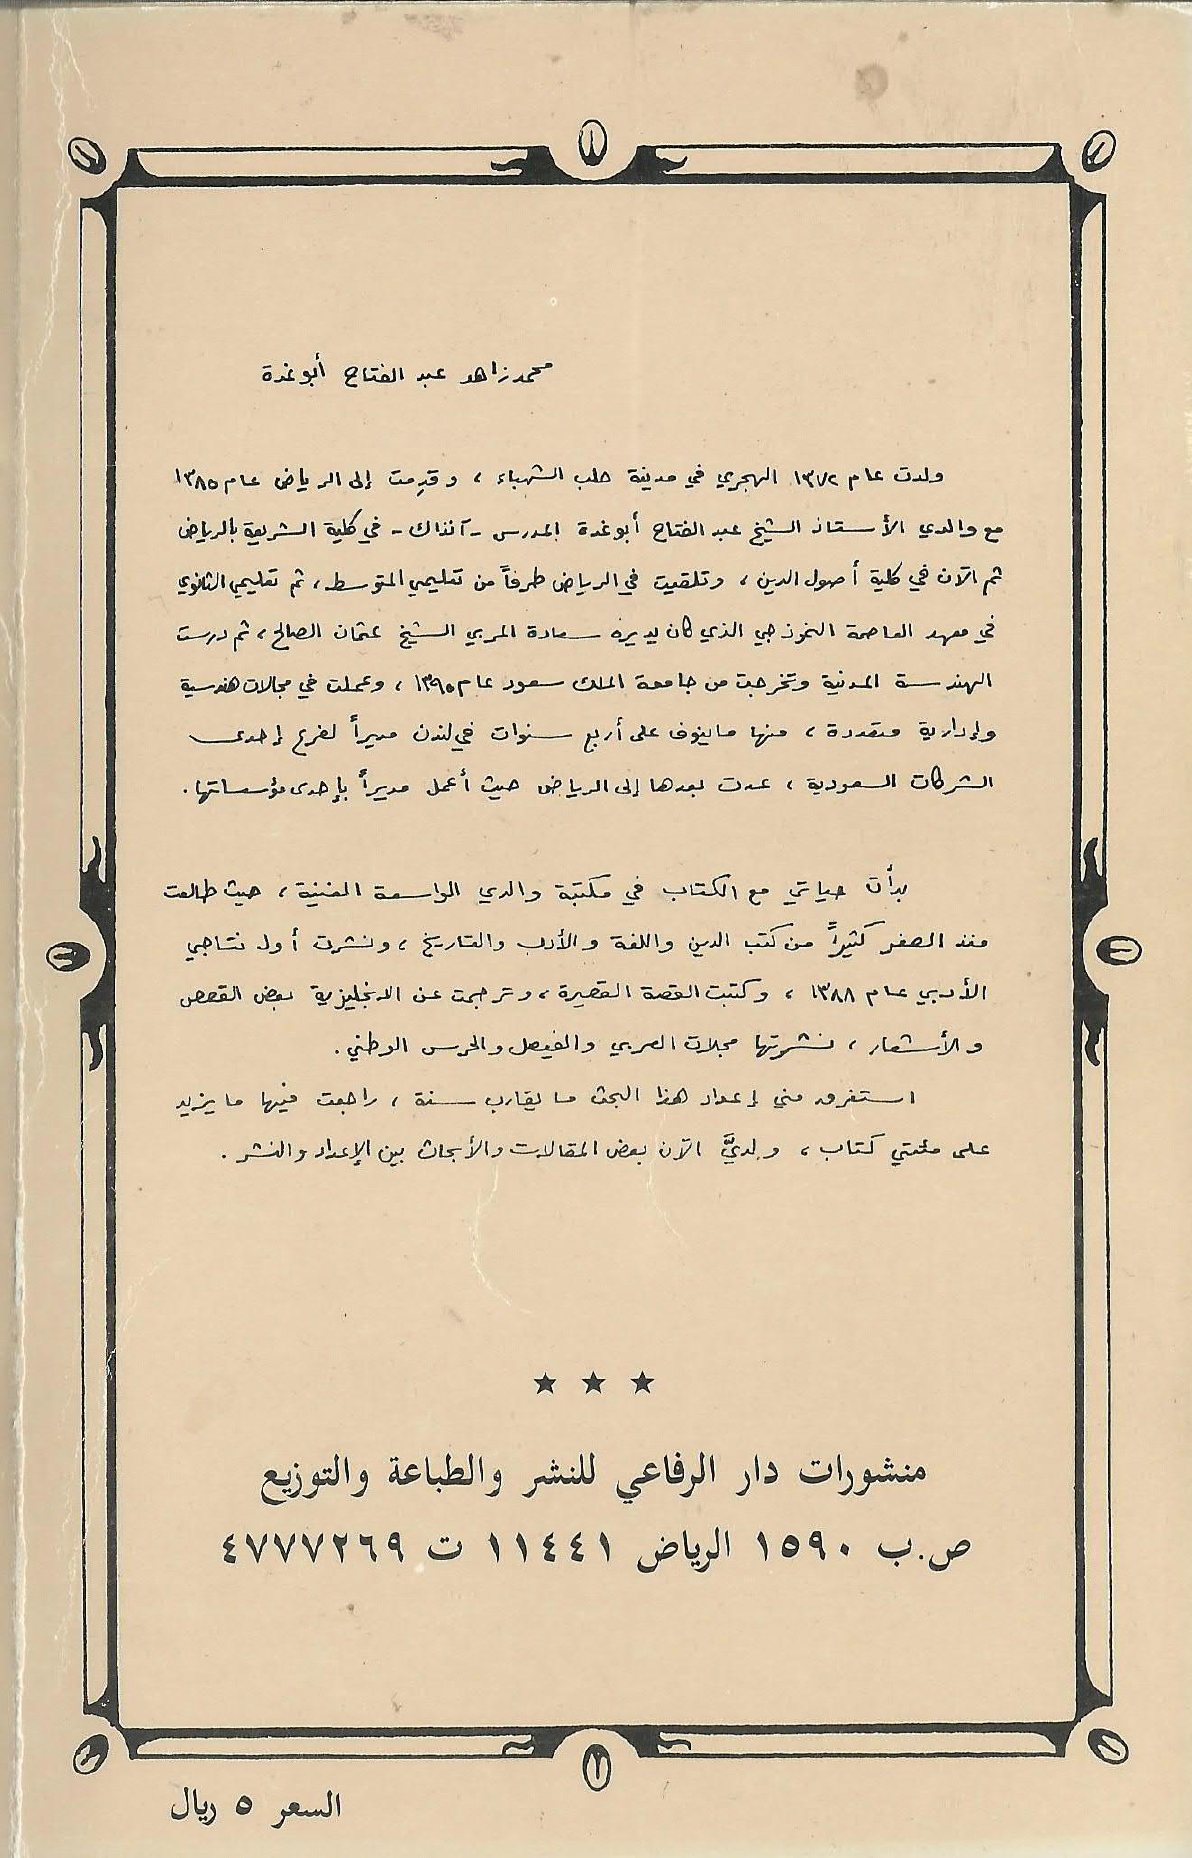 محمد زاهد عبد الفتاح أبوغدة
ولدت عام ١٣٧٢ الهجري في مدينة حلب الشهباء ، وقدِمت إلى الرياض عام ١٣٨٥
مع والدي الأستاذ الشيخ عبد الفتاح أبوغدة المدرس - آنذاك - في كلية الشريعة بالرياض
ثم الآن في كلية أصول الدين ، وتلقيت في الرياض طرفاً من تعليمي المتوسط ، ثم تعليمي الثانوي
في معهد العاصمة النموذجي الذي كان يديره سعادة المربي الشيخ عثمان الصالح ، ثم درست
الهندسة المدنية وتخرجت من جامعة الملك سعود عام ١٣٩٥ ، وعملت في مجالات هندسية
وإدارية متعددة ، منها ماينوف على أربع سنوات في لندن مديراً لفرع إحدى
الشركات السعودية ، عدت بعدها إلى الرياض حيث أعمل مديراً بإحدى مؤسساتها .
بدأت حياتي مع الكتاب في مكتبة والدي الواسعة الغنية ، حيث طالعت
منذ الصغر كثيراً من كتب الدين واللغة والأدب والتاريخ ، ونشرت أول نتاجي
الأدبي عام ١٣٨٨ ، وكتبت القصة القصيرة ، وترجمت عن الانجليزية بعض القصص
والأشعار ، نشرتها مجلات العربي والفيصل والحرس الوطني .
استغرق مني إعداد هذا البحث ما يقارب سنة ، راجعت فيها ما يزيد
على مئتي كتاب ، ولديَّ الآن بعض المقالات والأبحاث بين الإعداد والنشر .
★ ★ ★
منشورات دار الرفاعي للنشر والطباعة والتوزيع
ص.ب ١٥٩٠ الرياض ١١٤٤١ ت ٤٧٧٧٢٦٩
السعر ٥ ريال